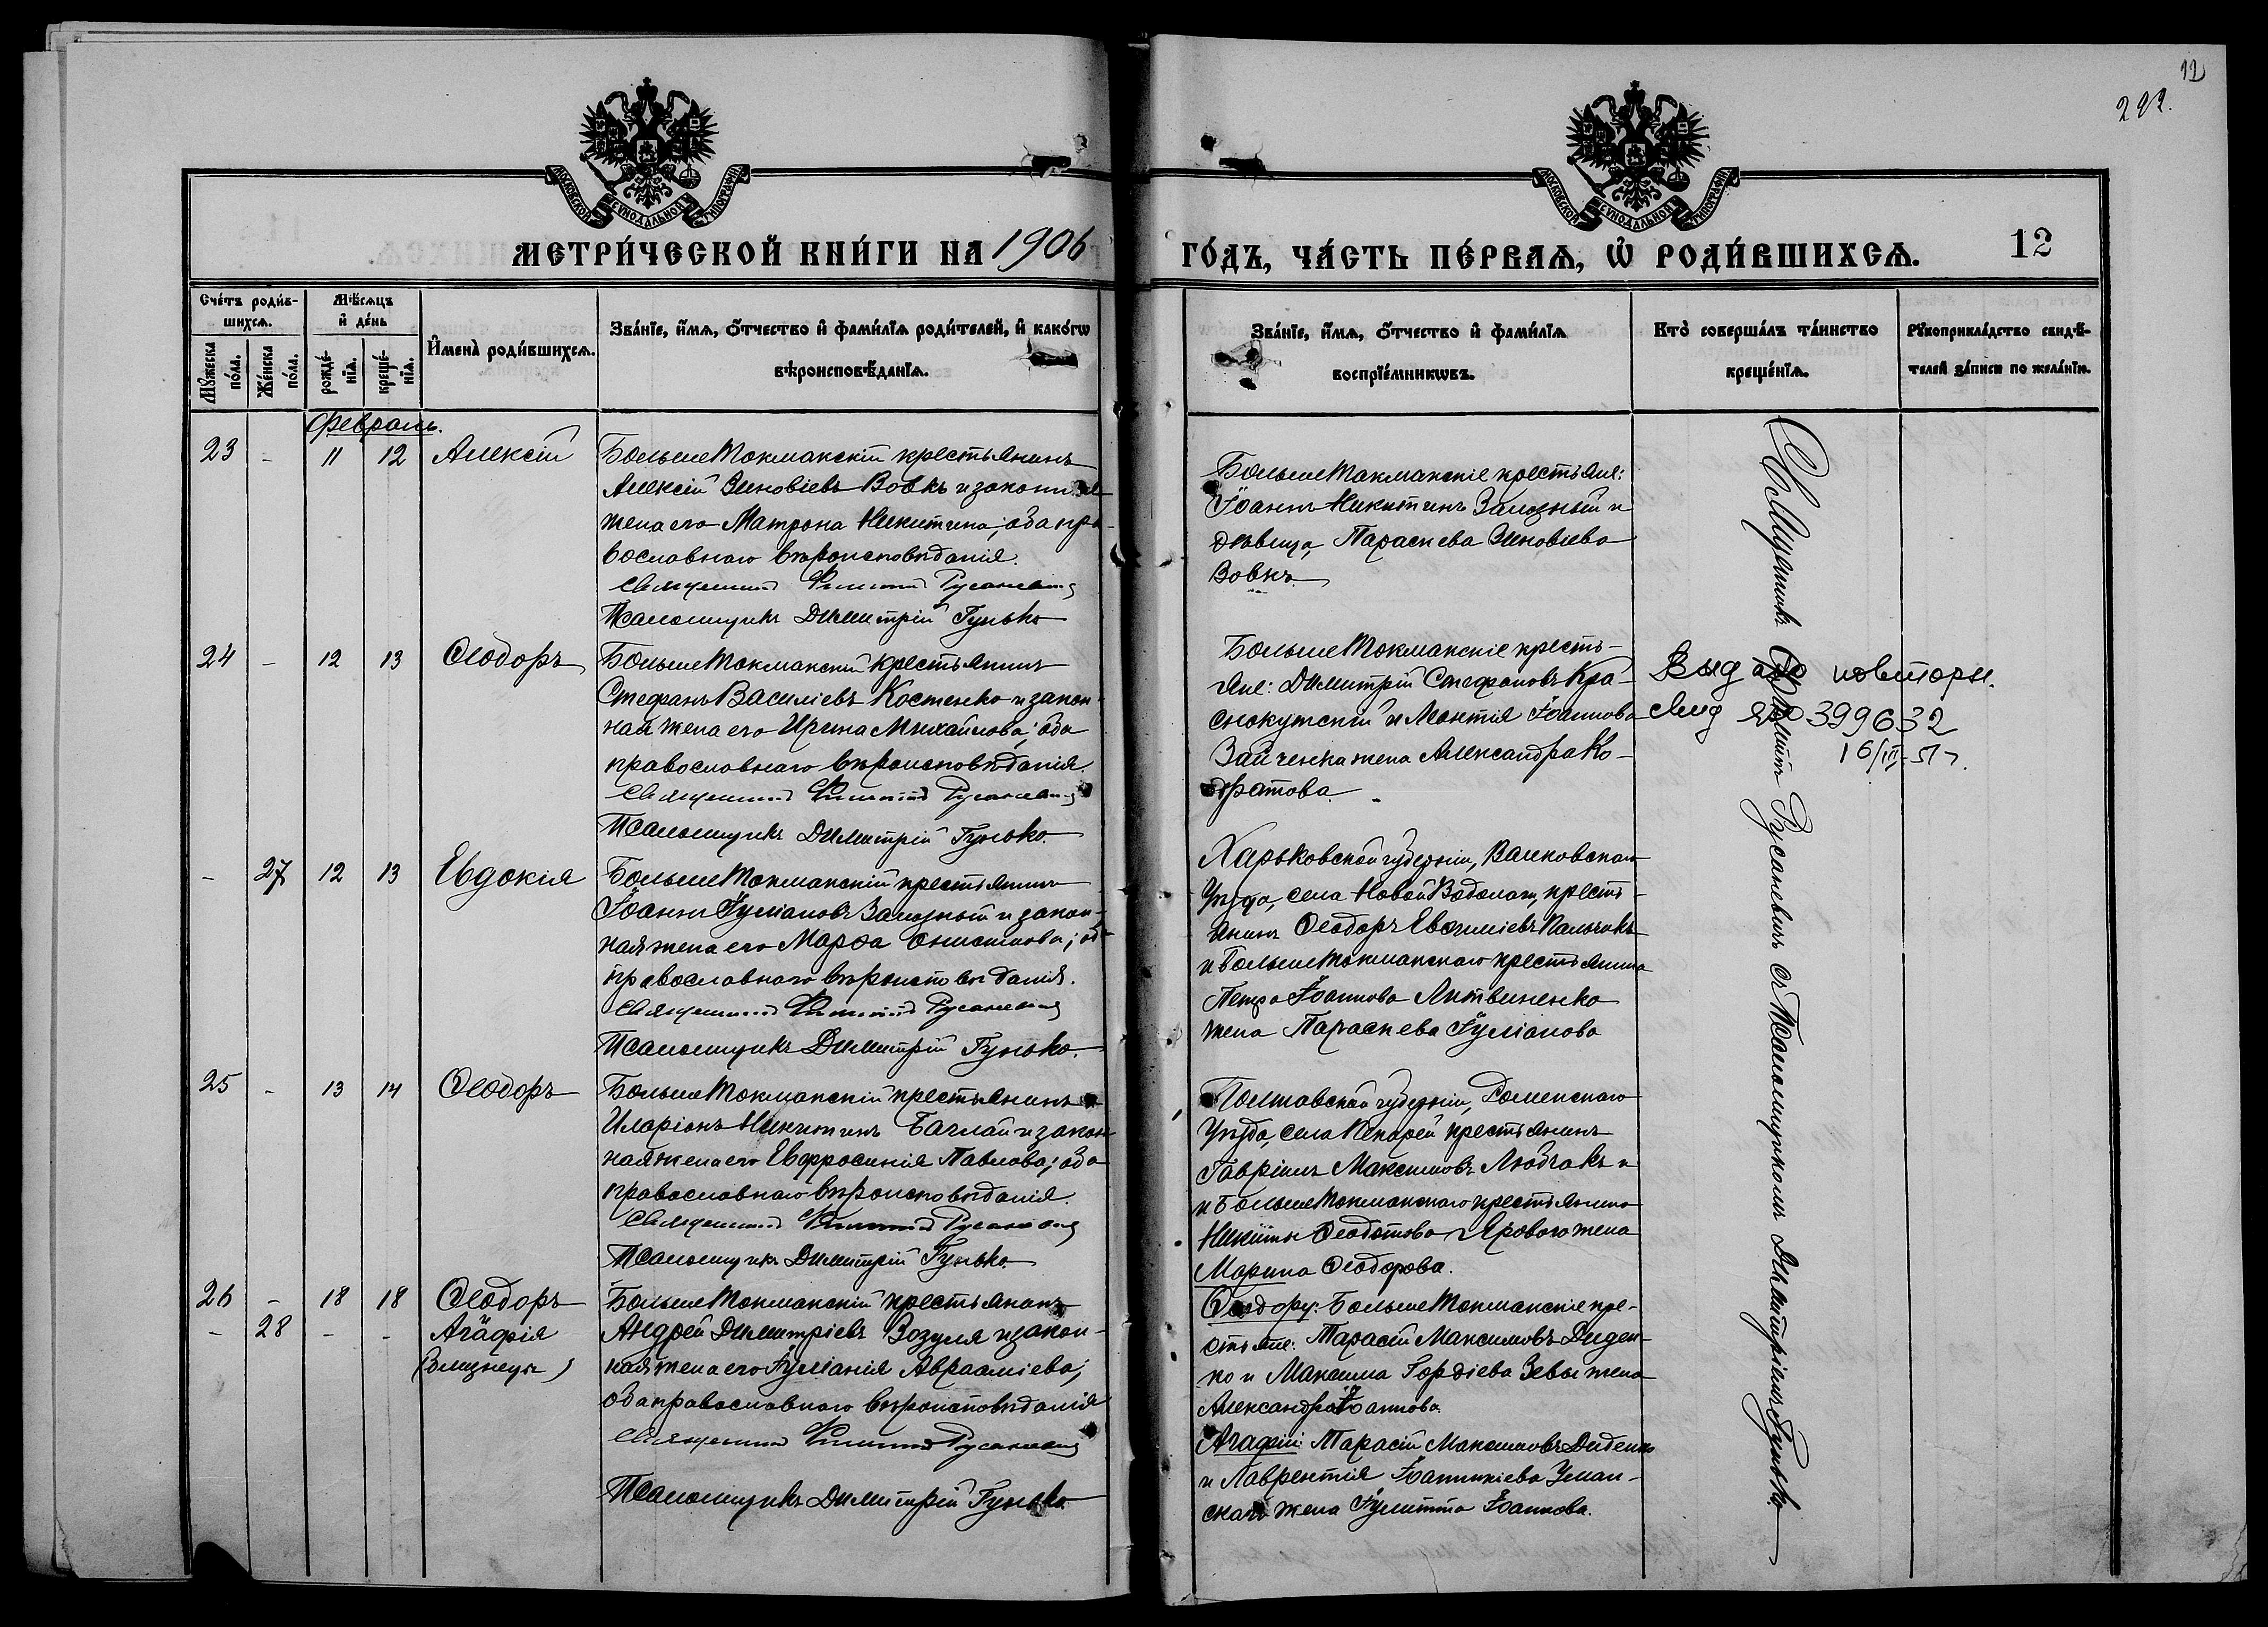 12
292.
МОСКОВСКОЙ СѴНОДАЛЬНОЙ ТИПОГРАФІИ
МОСКОВСКОЙ СѴНОДАЛЬНОЙ ТИПОГРАФІИ
МЕТРИ́ЧЕСКОЙ КНИ́ГИ НА 1906
ГО́ДЪ, ЧА́СТЬ ПЕ́РВАѦ, Ѽ РОДИ́ВШИХСѦ. 12
Сче́тъ роди́в-
шихсѧ.
Мꙋ́жеска по́ла.
Же́нска по́ла.
Мѣ́сѧцъ и҆ де́нь
рожде́-
нїѧ.
креще́-
нїѧ.
И҆мена̀ роди́вшихсѧ.
Зва́нїе, и҆́мѧ, ѻ҆́тчество и҆ фами́лїѧ роди́телей, и҆ како́гѡ
вѣроисповѣ́данїѧ.
Зва́нїе, и҆́мѧ, ѻ҆́тчество и҆ фами́лїѧ
воспрїе́мникѡвъ.
Кто̀ соверша́лъ та́инство
креще́нїѧ.
Рꙋкоприкла́дство свидѣ́-
телей за́писи по жела́нїю.
Февраль.
23 - 11 12 Алексій
БольшеТокмакскій крестьянинъ
Алексій Зиновіевъ Вовкъ и законная
жена его Матрона Никитина; оба пра-
вославнаго вѣроисповѣданія.
Священникъ Филиппъ Русаневичъ
Псаломщикъ Димитрій Гунько
БольшеТокмакскіе крестьяне:
Іоаннъ Никитинъ Зализный и
дѣвица Параскева Зиновіева
Вовкъ.
24 - 12 13 Ѳеодоръ
БольшеТокмакскій крестьянинъ
Стефанъ Василіевъ Костенко и закон-
ная жена его Ирина Михайлова; оба
православнаго вѣроисповѣданія.
Священникъ Филиппъ Русаневичъ
Псаломщикъ Димитрій Гунько.
БольшеТокмакскіе кресть-
яне: Димитрій Стефановъ Кра-
снокутскій и Леонтія Іоаннова
Зайченка жена Александра Ко-
дратова.
Выдано повторн.
свид ЯР 399632
16/III-57.
- 27 12 13 Евдокія
БольшеТокмакскій крестьянинъ
Іоаннъ Іуліановъ Зализный и закон-
ная жена его Марѳа Онисимова; оба
православнаго вѣроисповѣданія.
Священникъ Филиппъ Русаневичъ
Псаломщикъ Димитрій Гунько.
Харьковской губерніи, Валковскаго
уѣзда, села Новой Водолаги, кресть-
янинъ Ѳеодоръ Евѳиміевъ Пальчикъ
и БольшеТокмакскаго крестьянина
Петра Іоаннова Литвиненко
жена Параскева Іуліанова
25 - 13 14 Ѳеодоръ
БольшеТокмакскій крестьянинъ
Иларіонъ Никитинъ Баглай и закон
ная жена его Евфросинія Павлова; оба
православнаго вѣроисповѣданія.
Священникъ Филиппъ Русаневичъ
Псаломщикъ Димитрій Гунько.
Полтавской губерніи, Роменскаго
уѣзда, села Пекарей крестьянинъ
Гавріилъ Максимовъ Любчакъ и
и БольшеТокмакскаго крестьянина
Никиты Ѳеодотова Ярового жена
Марина Ѳеодорова.
26 - 18 18 Ѳеодоръ
- 28 - - Агафія
(близнецы)
БольшеТокмакскій крестьянинъ
Андрей Димитріевъ Возуля и закон-
ная жена его Іуліанія Авраамiева;
оба православнаго вѣроисповѣданія
Священникъ Филиппъ Русаневичъ
Псаломщикъ Димитрій Гунько.
Ѳеодору: БольшеТокмакскіе кре-
стьяне: Тарасій Максимовъ Диден-
ко и Максима Гордіева Зевы жена
Александра Іоаннова.
Агафіи: Тарасій Максимовъ Диденко
и Лаврентія Іоанникіева Уман-
скаго жена Іулитта Іоаннова.
Священникъ Филиппъ Русаневичъ съ Псаломщикомъ Димитріемъ Гунько